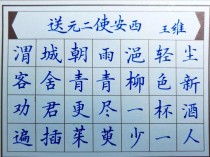 送元二使安西 王维
渭城朝雨浥轻尘
客舍青青柳色新
劝君更尽一杯酒
遍插茱萸少一人